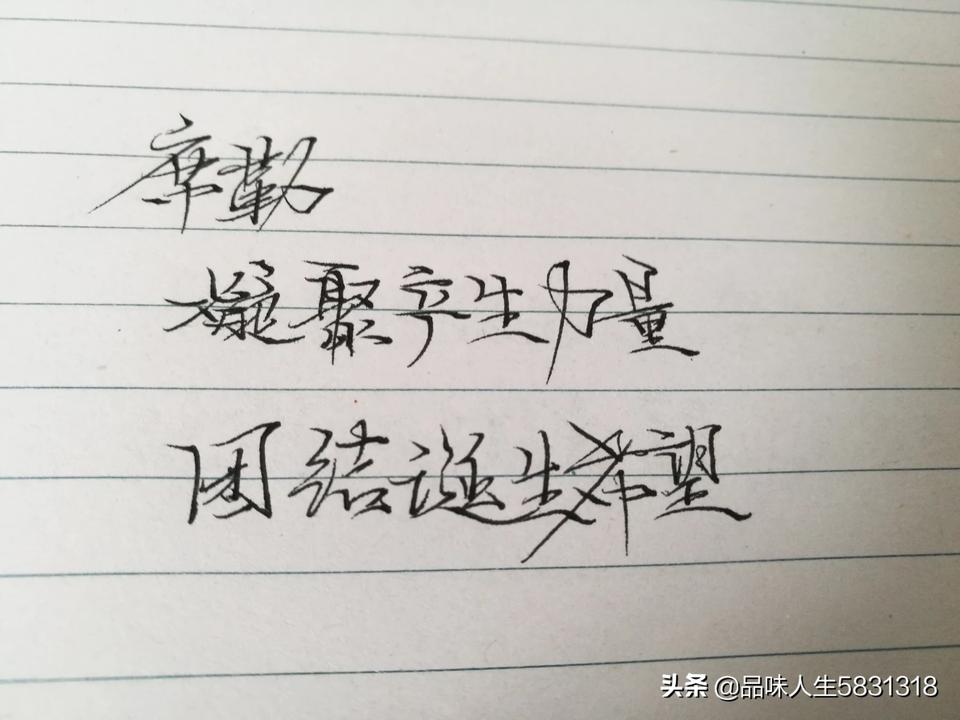 席勒
凝聚产生力量
团结诞生希望
头条 @品味人生5831318